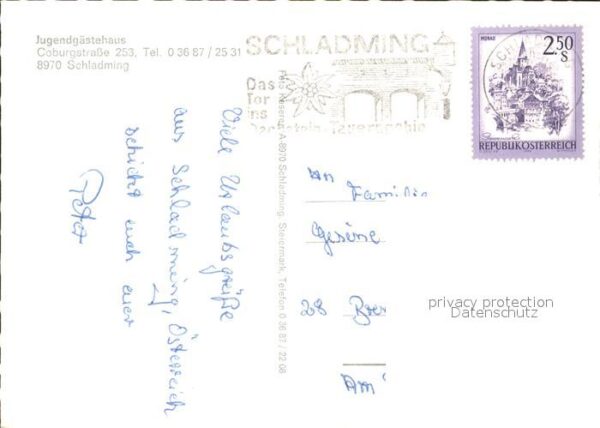 Jugendgästehaus
Coburgstraße 253, Tel. 0 36 87 / 25 31
8970 Schladming
SCHLADMING
Das
Tor
ins
Dachstein-Tauerngebiet
MURAU
2.50
S
REPUBLIK ÖSTERREICH
A-8970 Schladming, Steiermark, Telefon 0 36 87 / 22
Viele Urlaubsgrüße
aus Schladming, Österreich
schickt euch euer
Peter
An
Familie
Gesine
28 Bre
Am
privacy protection
Datenschutz